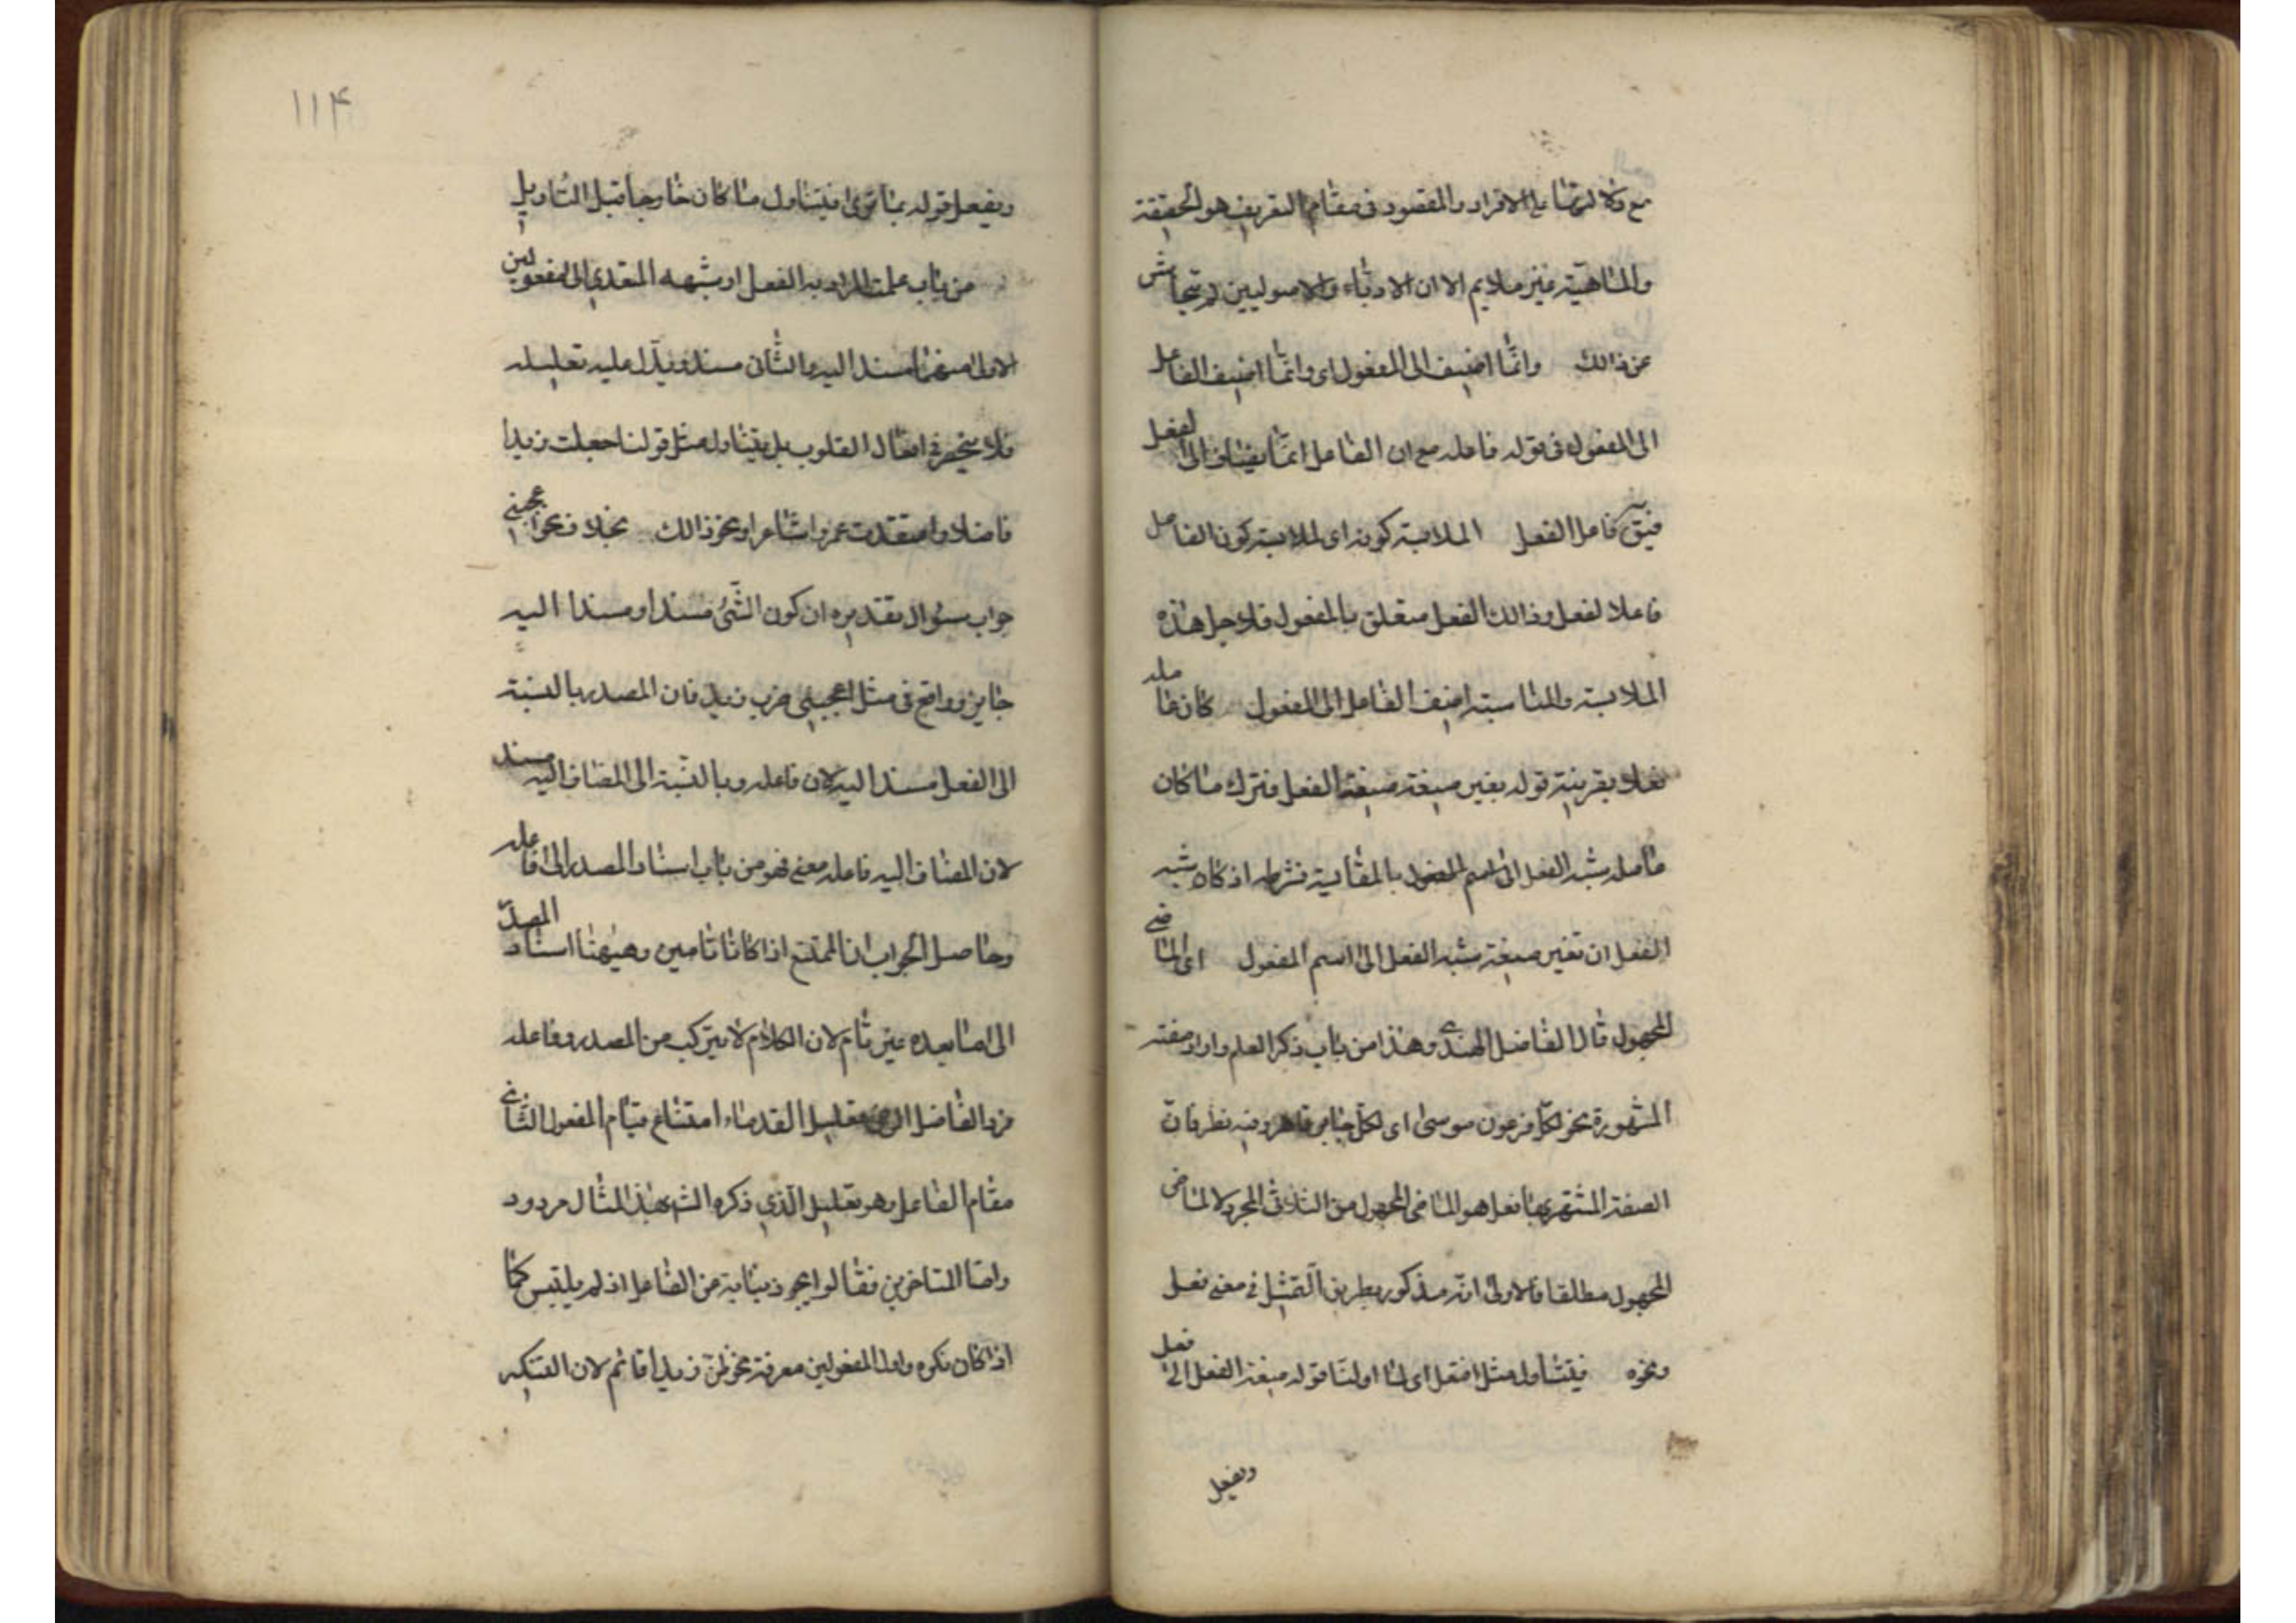 مع دلالتها على الافراد والمقصود فى مقام التعريف هو الحقيقة
والماهية غير ملايم الا ان الادباء والاصوليين لم يتحاش
عن ذالك وانما اضيف الى المفعول اى وانما اضيف الفاعل
الى المفعول فى قوله فاعله مع ان الفاعل انما يضاف الى الفعل
فيقال فاعل الفعل الملابسة كونه اى لملابسة كون الفاعل
فاعلا لفعل وذالك الفعل متعلق بالمفعول فلاجل هذه
الملابسة والمناسبة اضيف الفاعل الى المفعول كان عامله
فعلا بقرينة قوله بغير صيغة صيغة الفعل فترك ما كان
عامله شبه الفعل اى اسم المفعول بالمقايسة فشرطه اذ كان شبه
الفعل ان تغير صيغة شبه الفعل الى اسم المفعول اى الماضى
المجهول قال الفاضل الهندى وهذا من باب ذكر العلم وارادة صفته
المشهورة نحو لكل فرعون موسى اى لكل جبار قاهر وفيه نظر فان
الصفة المشتهر بها فعل هو الماضى المجهول من الثلاثى المجرد لا الماضى
المجهول مطلقا فالاولى انه مذكور بطريق التمثيل فى معنى فعل
ونحوه فيتناول مثل افتعل اى لما اولنا قوله صيغة الفعل الى فعل
ويفعل
١١۴
ويفعل قوله بما ترى فيتناول ما كان خارجا قبل التاويل
من باب علمت المراد به الفعل او شبهه المتعدى الى مفعولين
الاول منهما مسند اليه والثانى مسند ويدل عليه تعليله
فلا ينحصر فى افعال القلوب بل يتناول مثل قولنا جعلت زيدا
فاضلا واعتقدت عمروا شاعرا ونحو ذالك بخلاف نحو اعجبنى
جواب سئوال تقديره ان كون الشئ مسندا ومسندا اليه
جايز وواقع فى مثل اعجبنى ضرب زيد فان المصدر بالنسبة
الى الفعل مسند اليه لان فاعله وبالنسبة الى المضاف اليه مسند
لان المضاف اليه فاعله معنى فهو من باب اسناد المصدر الى فاعله
وحاصل الجواب ان الممتنع اذا كانا تامين وهيهنا اسناد المصدر
الى ما بعده غير تام لان الكلام لا يتركب من المصدر وفاعله
فرد الفاضل الرضى تعليل القدماء امتناع قيام المفعول الثانى
مقام الفاعل وهو تعليل الذى ذكره الشه بهذا المثال مردود
واما المتاخرين فقالوا يجوز نيابته عن الفاعل اذ لم يلتبس كما
اذا كان نكره واول المفعولين معرفة نحو ظن زيدا قائم لان التنكير